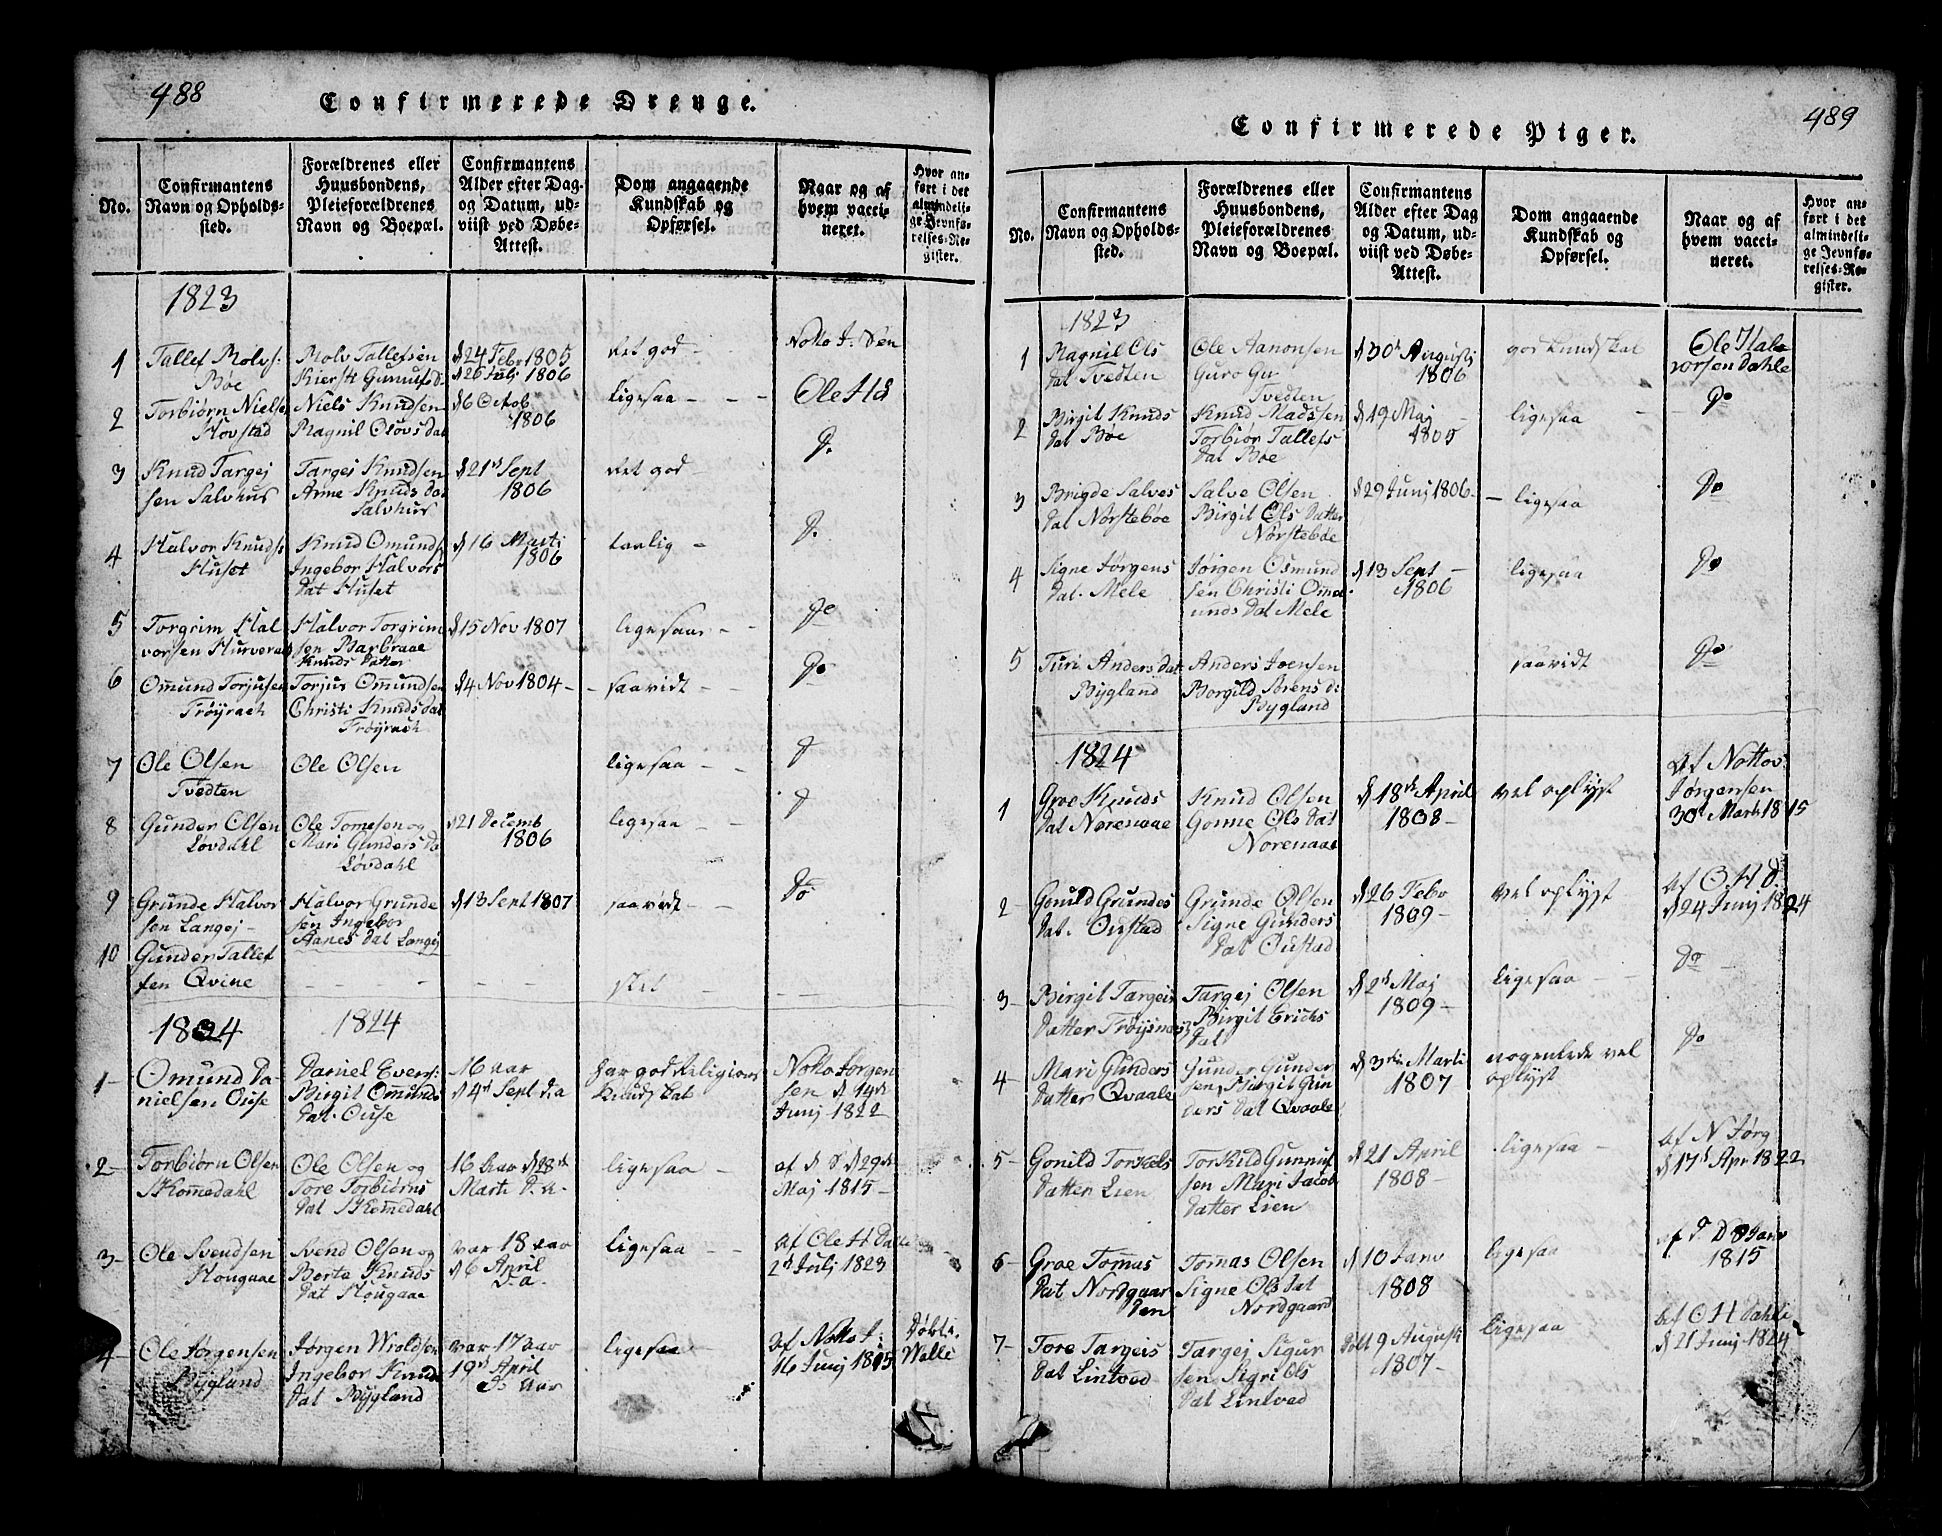 488
Confirmerede Drenge.
No.
Confirmantens
Navn og Opholds-
sted.
Forældrenes eller
Huusbondens,
Pleieforældrenes
Navn og Boepæl.
Confirmantens
Alder efter Dag
og Datum, ud-
viist ved Døbe-
Attest.
Dom angaaende
Kundskab og
Opførsel.
Naar og af
hvem vacci-
neret.
Hvor an-
ført i det
almindeli-
ge Jevnfø-
relses-Re-
gister.
1823
1
Tallef Molvs:
Bøe
Molv Tallefsen
Kiersti Gunulfsd:
d 24 Febr 1805
d 26 Julj 1806
ret god - -
Notto J: Søn
2
Torbiørn Niels
Hovstad
Niels Knudsen
Magnil Olovs dat
d 6 Octob
1806
ligesaa - - -
Ole H d
3
Knud Targej
sen Salvhus
Targej Knudsen
Anne Knuds dat
Salvhus
d 21 Sept
1806
ret god -
D.
4
Halvor Knuds
Huset
Knud Omunds
Ingebor Halvors
dat Huset
d 16 Marti
1806
taalig -
D.
5
Torgrim Hal
vorsen Hurverak
Halvor Torgrim
sen Barbraae
Knuds datter
d 15 Nov 1807
ligesaa - -
do
6
Omund Torjusen
Frøyrach
Torjus Omundsen
Christi Knuds dat
Frøyrach
d 4 Nov 1804 -
- saavidt - -
Do
7
Ole Olsen
Tvedten
Ole Olsen
ligesaa - -
d
8
Gunder Olsen
Løvdahl
Ole Tomesen og
Mari Gunders da
Løvdahl
d 21 Decemb
1806
ligesaa - -
d
9
Grunde Halvor
sen Langej -
Halvor Grunde
sen Ingebor
Aanes dat Langej
d 13 Sept 1807
saavidt - -
Do
10
Gunder Tallef
sen Qvine
- - - - -
slet
- -
1824
1824
1 -
Omund Da
nielsen Ouse
Daniel Evers:
Birgit Omunds
dat: Ouse
16 aar
d 4 Sept da
har god Religions
kundskab
Notto Jørgen
sen d 14d
Junj 1822
2 -
Torbiørn Olsen
Skomedahl
Ole Olsen og
Tore Torbiørns
dat Skomedahl
16 aar d 28d
Marti d. a.
ligesaa -
af d d d 29d
Maj 1815 -
3 -
Ole Svendsen
Hougaae
Svend Olsen og
Berte Knuds
dat Hougaae
var 18 aar
d 6 April
d. a.
ligesaa -
af Ole H Dale
2d Julj 1823
4 -
Ole Jørgensen
Bygland
Jørgen Wroldsen
Ingebor Knuds
dat Bygland
var 17 aar
19d April
d. aar
ligesaa -
af Notto J:
16 Junj 1815
Døbt i
Walle
489
Confirmerede Piger.
No.
Confirmantens
Navn og Opholds-
sted.
Forældrenes eller
Huusbondens,
Pleieforældrenes
Navn og Boepæl.
Confirmantens
Alder efter Dag
og Datum, ud-
viist ved Døbe-
Attest.
Dom angaaende
Kundskab og
Opførsel.
Naar og af
hvem vacci-
neret.
Hvor an-
ført i det
almindeli-
ge Jevnfø-
relses-Re-
gister.
1823
1
Magnil Ols
dat Tvedten
Ole Aanonsen
Guro Gu
Tvedten
d 30 Augusti
1806
god kundskab
Ole Hal
vorsen Dahle
2
Birgit Knuds
dat Bøe
Knud Madssen
Torbiør Tallefs
dat Bøe
d 19 Maj -
1805
ligesaa
Do
3
Brigde Salves
dat Norstebøe
Salve Olsen
Birgit Ols datter
Norstebøe
d 29 Junj 1806 -
- ligesaa
Do
4
Signe Jørgens
dat. Mele
Jørgen Osmund
sen Christi Om
unds dat Mele
d 13 Sept -
1806
ligesaa
Do
5
Turi Anders dat
Bygland
Anders Joensen
Borgild Sørens d:
Bygland
saavidt
Do
1824
1
Groe Knuds
dat Norenaae
Knud Olsen
Gonne Ols dat
Norenaae
d 18 April
1808 -
vel oplyst
af Nottov
Jørgensen
30 Marti 1815
2 -
Gonild Grundes
dat. Oustad
Grunde Olsen
Signe Gunders
dat Oustad
d 26 Febr
1809 -
vel oplyst
af O. H d.
d 24 Junj 1824
3 -
Birgit Targeis
datter Frøysnes
Targej Olsen
Birgit Erichs
dat
d 2 Maj
1809 -
ligesaa -
Do -
4 -
Mari Gunders
datter Qvaale
Gunder Gunder
sen, Birgit Gun
ders dat Qvaale
d 3die Marti
1807
nogenlede vel
oplyst
Do
5 -
Gonild Torkels
datter Lien
Torkild Gunnuf
sen Mari Jacob
datter Lien
d 21 April
1808 -
ligesaa -
af N Jørg
d 17 Apr 1822
6 -
Groe Tomas
dat Nordgaar
den
Tomas Olsen
Signe Ols dat
Nordgaard
d 10 Janv
1808
ligesaa
1815
7 -
Tore Targeis
dat Lintved
Targej Sigur
sen Sigri Ols
dat Lintved
Døbt 9 August
1807 -
ligesaa
af O H Dahle
d 21 Junj 1824